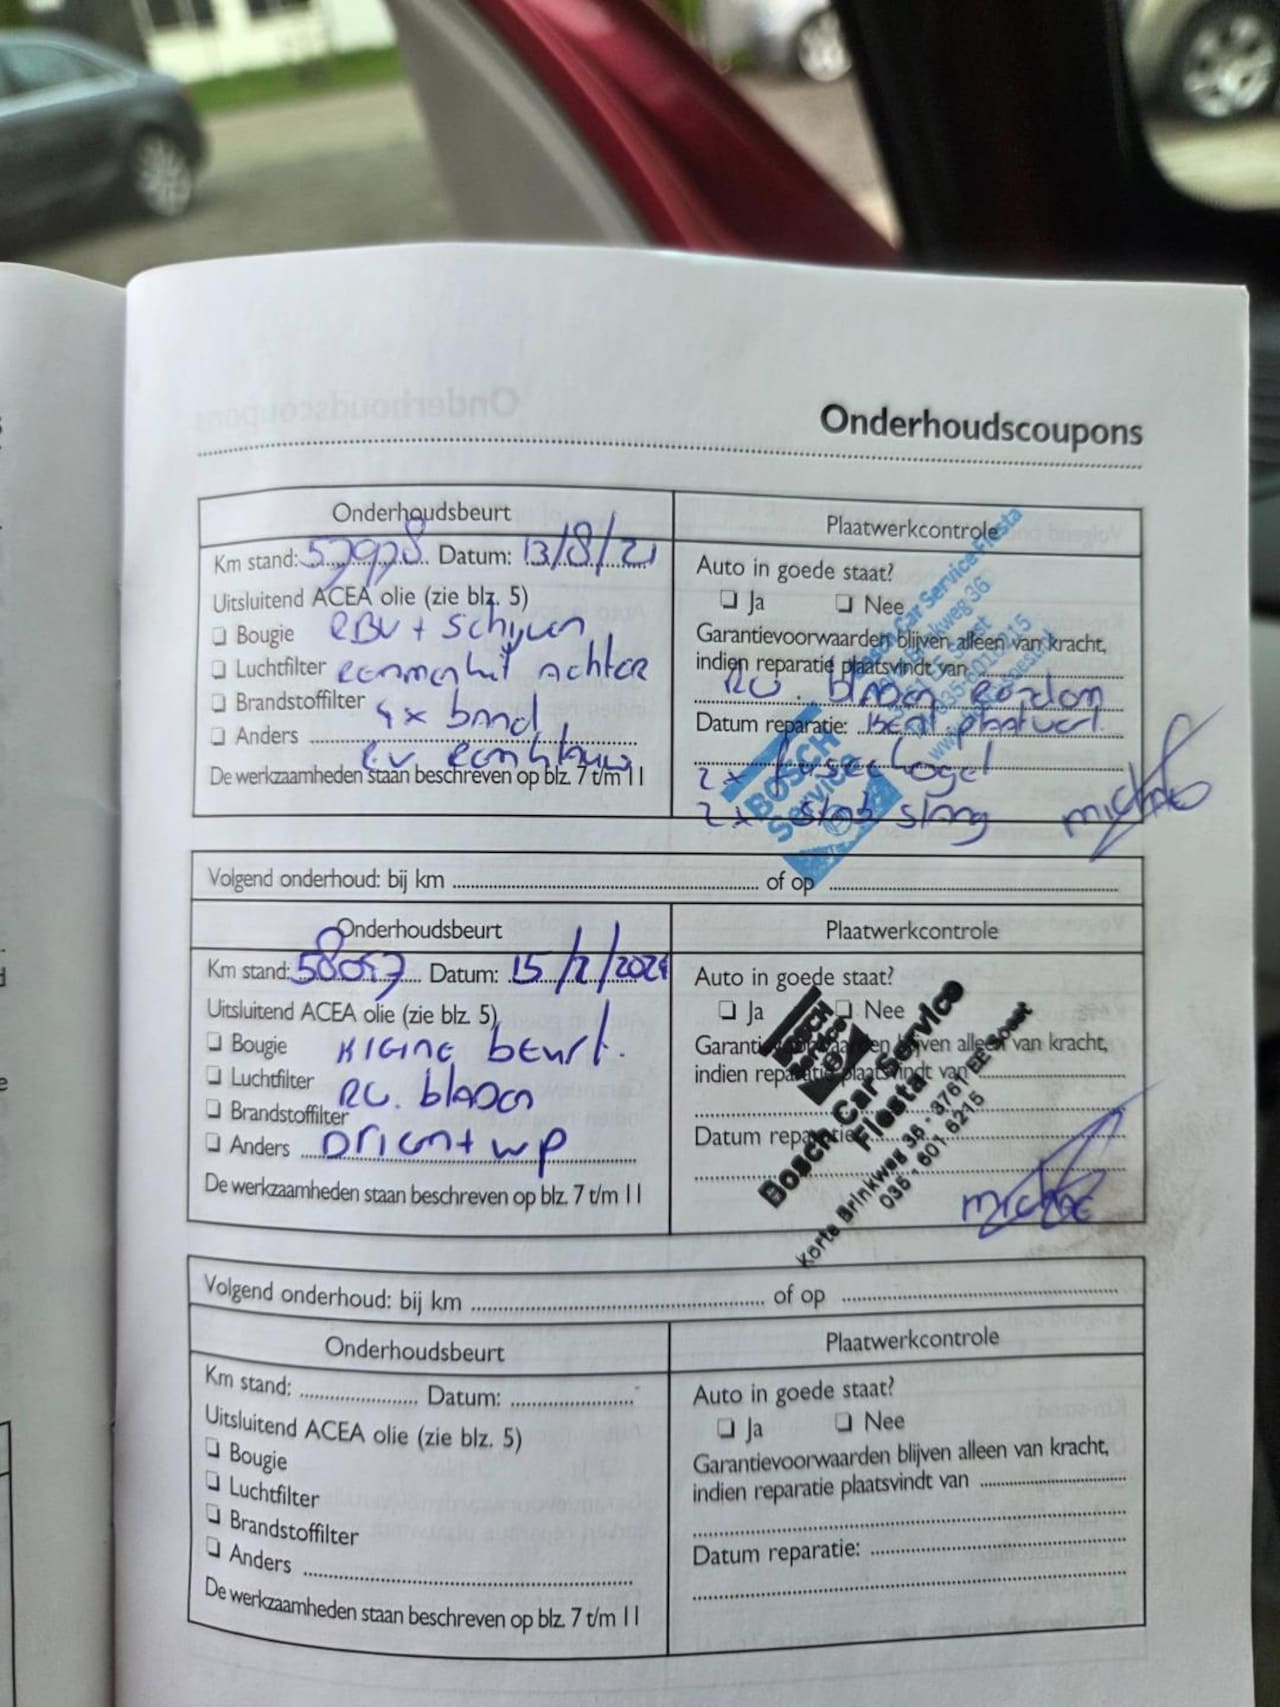 Onderhoudscoupons
Onderhoudsbeurt
Km stand: 57978 Datum: 13/8/21
Uitsluitend ACEA olie (zie blz. 5)
Bougie
+ Schijven
Luchtfilter
Achter
Brandstoffilter
4x band
Anders
De werkzaamheden staan beschreven op blz. 7 t/m 11
Plaatwerkcontrole
Auto in goede staat?
Ja Nee
Garantievoorwaarden blijven alleen van kracht,
indien reparatie plaatsvindt van
RU. bladen
Datum reparatie:
2x fuseekogel
2x stab stang
BOSCH
Service
Bosch Car Service Fiesta
Brinkweg 36
Volgend onderhoud: bij km of op
Onderhoudsbeurt
Km stand: 58057 Datum: 15/2/2024
Uitsluitend ACEA olie (zie blz. 5)
Bougie Kleine beurt.
Luchtfilter RU. bladen
Brandstoffilter
Anders
De werkzaamheden staan beschreven op blz. 7 t/m 11
Plaatwerkcontrole
Auto in goede staat?
Ja Nee
Garantievoorwaarden blijven alleen van kracht,
indien reparatie plaatsvindt van
Datum reparatie:
BOSCH
Service
Bosch Car Service
Fiesta
Korte Brinkweg 36 - 3761 EE Soest
035 - 601 6215
Volgend onderhoud: bij km of op
Onderhoudsbeurt
Km stand: Datum:
Uitsluitend ACEA olie (zie blz. 5)
Bougie
Luchtfilter
Brandstoffilter
Anders
De werkzaamheden staan beschreven op blz. 7 t/m 11
Plaatwerkcontrole
Auto in goede staat?
Ja Nee
Garantievoorwaarden blijven alleen van kracht,
indien reparatie plaatsvindt van
Datum reparatie: